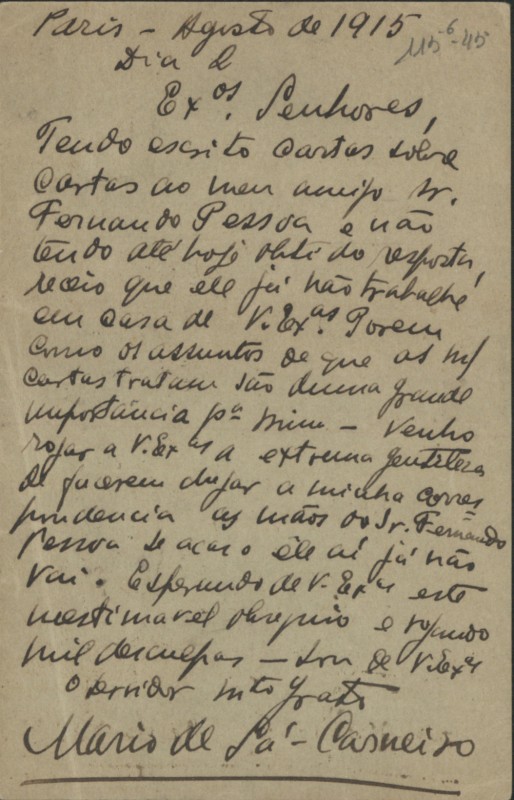 Paris - Agosto de 1915
115⁶-45
Dia 2
Ex.ºˢ Senhores,
Tendo escrito cartas sôbre
cartas ao meu amigo Sr.
Fernando Pessoa e não
tendo até hoje obtido resposta,
receio que ele já não trabalhe
em casa de V. Ex.ᵃˢ. Porem
como os assuntos de que as m/
cartas tratam são duma grande
importância pª mim - venho
rogar a V. Exᵃˢ a extrema gentileza
de fazerem chegar a minha corres-
pondencia ás mãos do Sr. Fernando
Pessoa se acaso êle aí já não
vai. Esperando de V. Exᵃˢ este
inestimavel obsequio e rogando
mil desculpas - sou de V. Exᵃˢ
o servidor mᵗᵒ grato
Mario de Sá-Carneiro